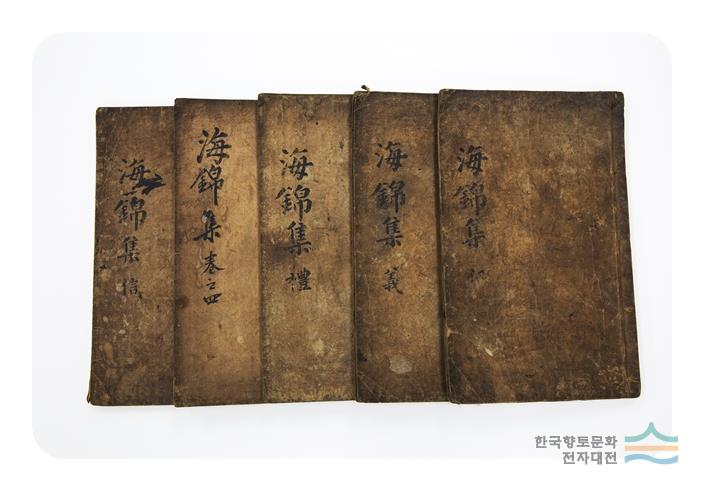 海錦集 信
海錦集 卷之四
海錦集 禮
海錦集 義
海錦集
한국향토문화
전자대전